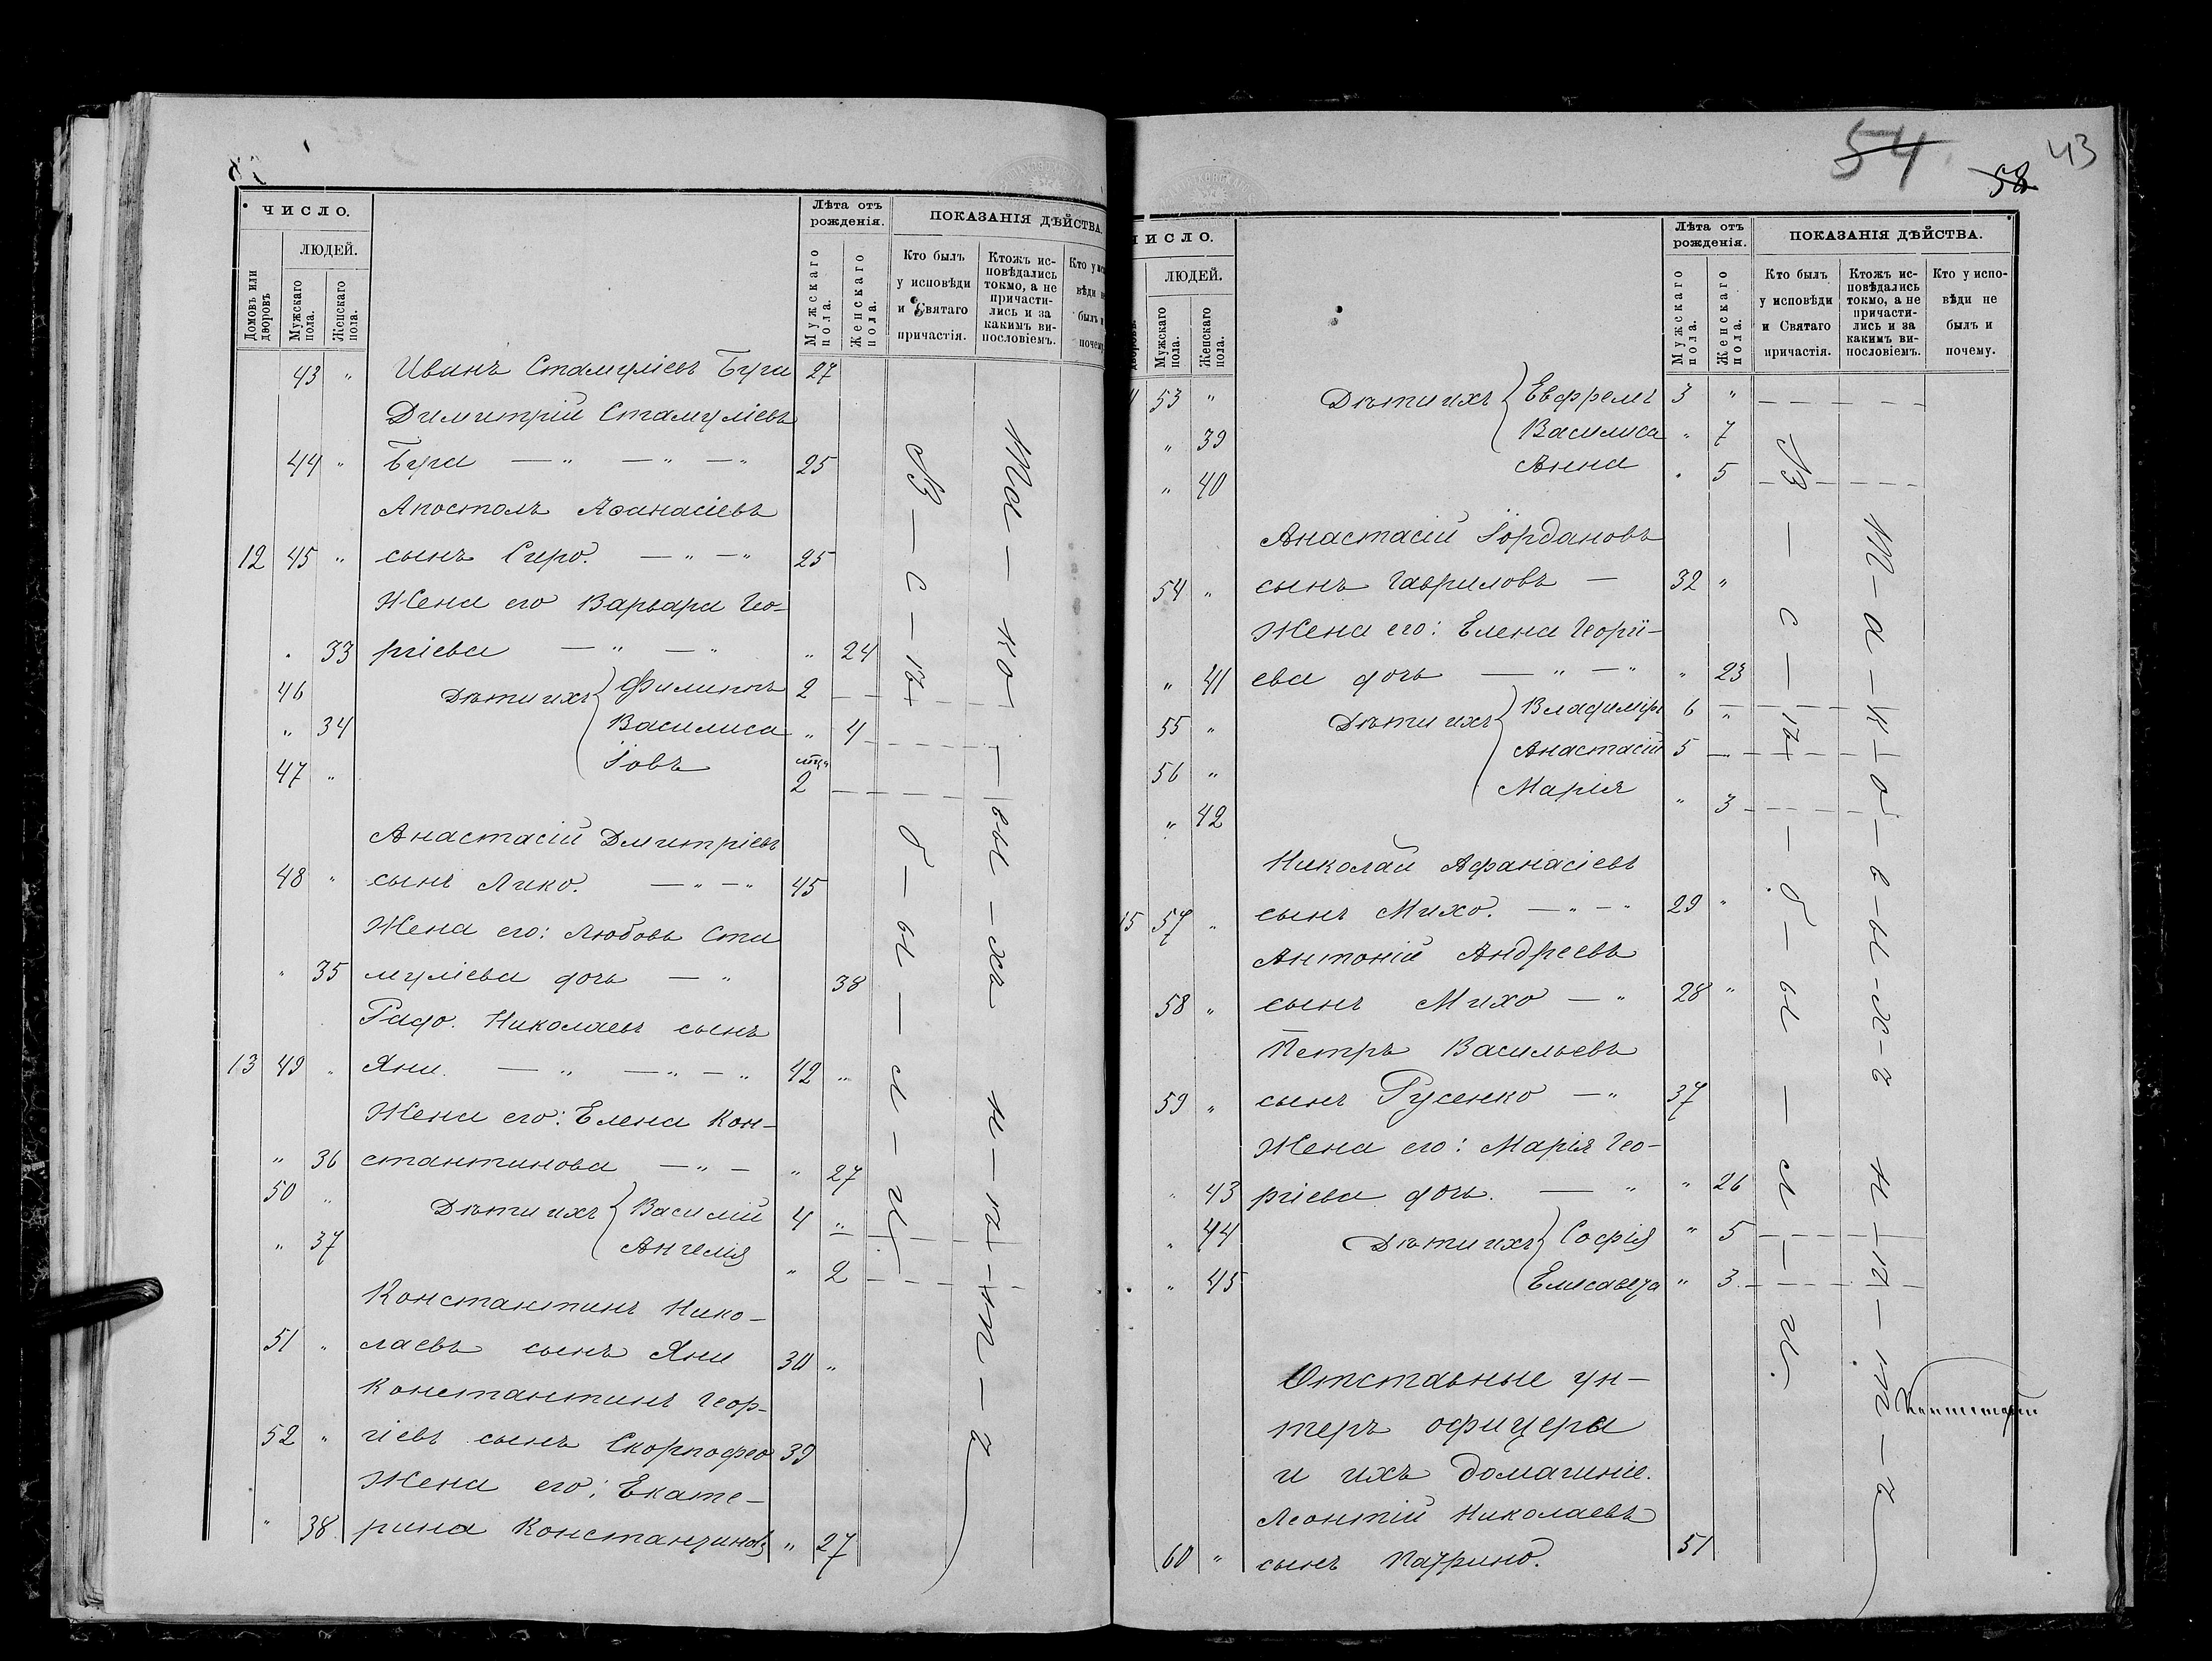 ЧИСЛО.
ЛЮДЕЙ.
Домовъ или дворовъ
Мужскаго пола.
Женскаго пола.
Лѣта отъ рожденія.
Мужскаго пола.
Женскаго пола.
ПОКАЗАНІЯ ДѢЙСТВА.
Кто былъ у исповѣди и Святаго причастія.
Ктожъ исповѣдались токмо, а не причастились и за какимъ виносло­віемъ.
43 " Иванъ Стамуліевъ Буга 27
Димитрій Стамуліевъ
44 " Буга — " — " — " 25
Апостолъ Аѳанасіевъ
12 45 " сынъ Сиро. — " — " 25
Жена его Варвара Гео-
" 33 ргіева — " — " " 24
46 Дѣти ихъ Филиппъ 2
" 34 Василиса " 4
47 " Іовъ мѣц. 2
Анастасій Дмитріевъ
48 " сынъ Лико. — " — " 45
Жена его: Любовь Ста
" 35 муліева дочь — " 38
Радо. Николаевъ сынъ
13 49 " Яни. — " — " — " 42 "
Жена его: Елена Кон-
" 36 стантинова — " — " 27
50 " Дѣти ихъ Василій 4 "
" 37 Ангелія " 2
Константинъ Нико-
51 " лаевъ сынъ Яни 30 "
Константинъ Геор-
52 " гіевъ сынъ Скорпофео 39
Жена его: Екате-
" 38. рина Константинова " 27
В — с — ѣ — б — ы — л — и.
Та — ко — вы — хъ н — ѣ — т — ъ
54 58 43
ЧИСЛО.
ЛЮДЕЙ.
дворовъ.
Мужскаго пола.
Женскаго пола.
Лѣта отъ рожденія.
Мужскаго пола.
Женскаго пола.
ПОКАЗАНІЯ ДѢЙСТВА.
Кто былъ у исповѣди и Святаго причастія.
Ктожъ исповѣдались токмо, а не причастились и за какимъ винословіемъ.
Кто у исповѣди не былъ и почему.
53 " Дѣти ихъ Евфремъ 3 "
" 39 Василиса " 7
" 40 Анна " 5
Анастасій Іордановъ
54 " сынъ Гавриловъ — 32 "
Жена его: Елена Георгі-
" 41 ева дочь — " — " " 23
55 " Дѣти ихъ Владиміръ 6 "
56 " Анастасій 5
" 42 Марія " 3
Николай Афанасіевъ
15 57 " сынъ Михо. — " — " 29 "
Антоній Андреевъ
58 " сынъ Михо — " 28 "
Петръ Васильевъ
59 " сынъ Русенко — " 37
Жена его: Марія Гео-
" 43 ргіева дочь. — " " 26
" 44 Дѣти ихъ Софія " 5
" 45 Елисавета " 3
Отставные ун-
теръ офицеры
и ихъ домашніе.
Леонтій Николаевъ
60 " сынъ Патрино. 51
В — с — ѣ — б — ы — л — и.
Т — а — к — о — в — ы — х — ъ н — ѣ — т — ъ